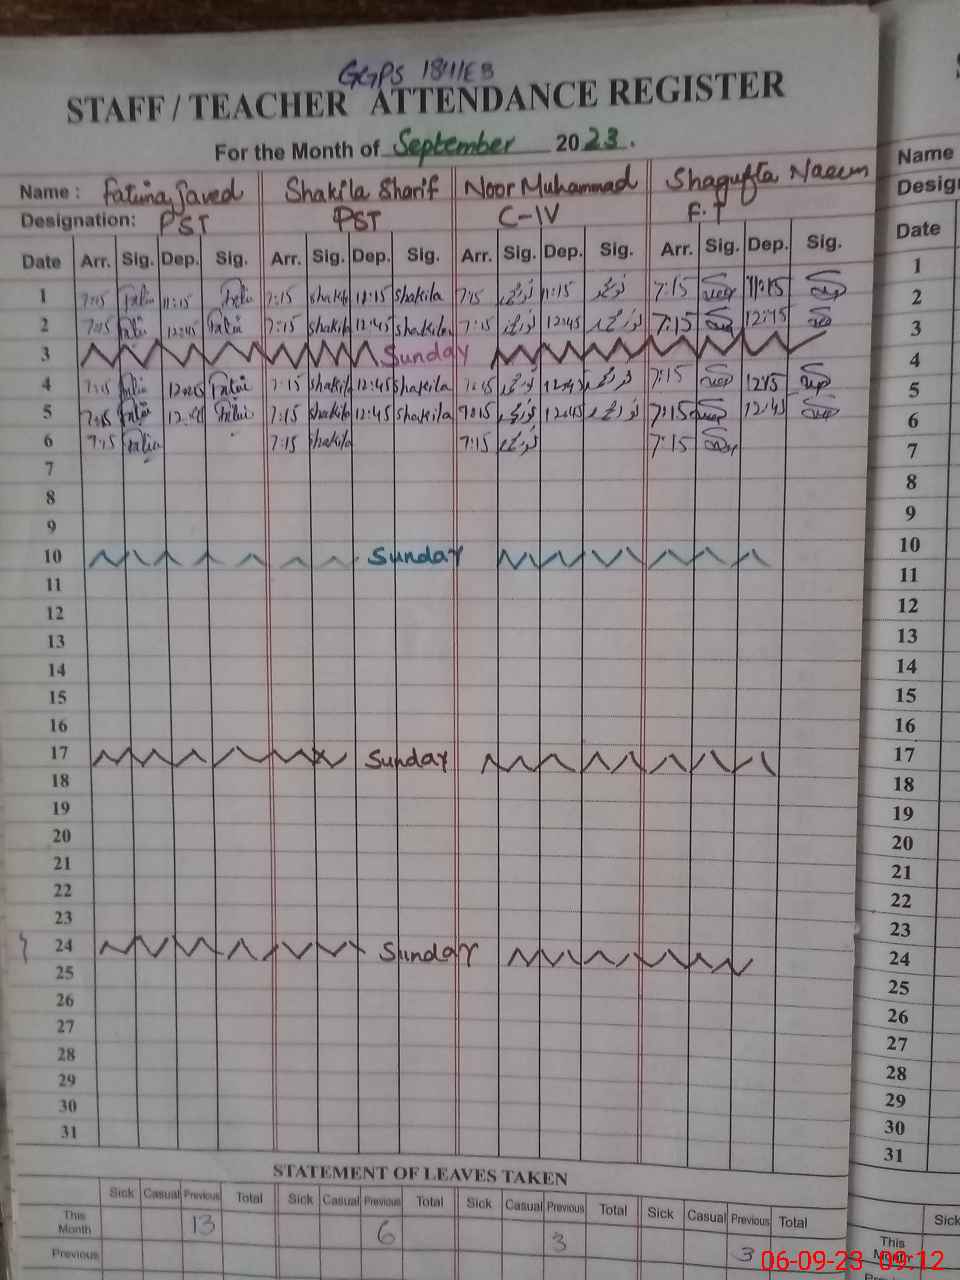 GGPS 184/EB
STAFF / TEACHER ATTENDANCE REGISTER
For the Month of September 2023.
Name : Fatima Javed Shakila Sharif Noor Muhammad Shagufta Naeem
Designation: PST PST C-IV F.T
Date Arr. Sig. Dep. Sig. Arr. Sig. Dep. Sig. Arr. Sig. Dep. Sig. Arr. Sig. Dep. Sig.
1 7:15 11:15 7:15 shakila 11:15 shakila 7:15 11:15 7:15 11:15
2 7:15 12:45 7:15 shakila 12:45 shakila 7:15 12:45 7:15 12:45
3 Sunday
4 7:15 12:45 7:15 shakila 12:45 shakila 7:15 12:45 7:15 1245
5 7:15 12:45 7:15 shakila 12:45 shakila 7:15 12:45 7:15 12:45
6 7:15 7:15 shakila 7:15 7:15
7
8
9
10 Sunday
11
12
13
14
15
16
17 Sunday
18
19
20
21
22
23
24 Sunday
25
26
27
28
29
30
31
STATEMENT OF LEAVES TAKEN
Sick Casual Previous Total Sick Casual Previous Total Sick Casual Previous Total Sick Casual Previous Total
This Month 13 6 3 3
Previous
Name
Date
1
2
3
4
5
6
7
8
9
10
11
12
13
14
15
16
17
18
19
20
21
22
23
24
25
26
27
28
29
30
31
Sick
This
06-09-23 09:12